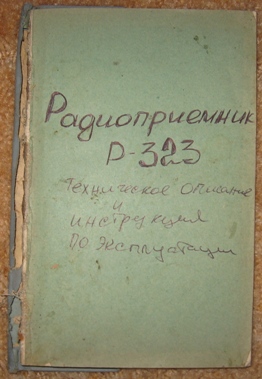 Радиоприемник
Р-323
Техническое описание
и
инструкция
по эксплуатации